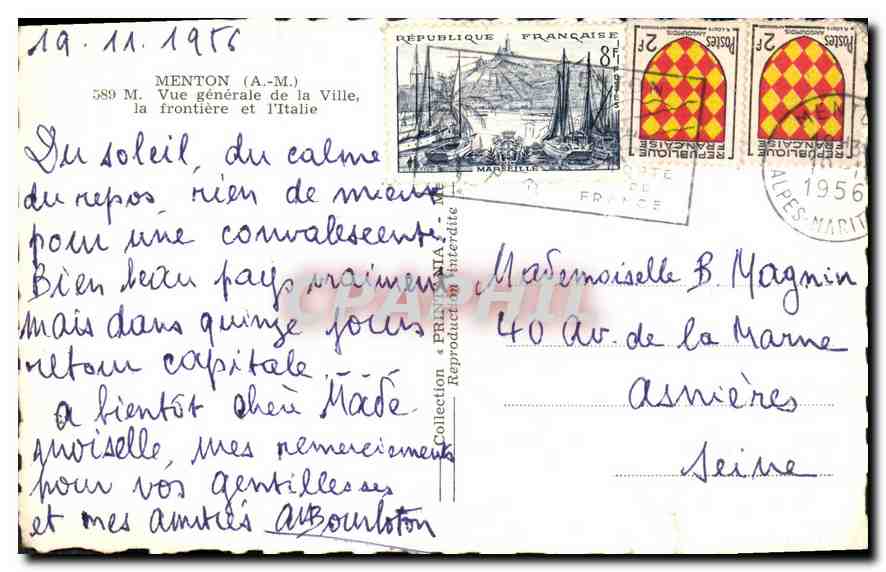 19.11.1956
MENTON (A.-M.)
589 M. Vue générale de la Ville,
la frontière et l'Italie
Du soleil, du calme
du repos, rien de mieux
pour une convalescente.
Bien beau pays vraiment
mais dans quinze jours
retour capitale....
a bientôt chère Made
moiselle, mes remerciements
pour vos gentillesses
et mes amitiés ABourloton
Collection « PRINTANIA »
Reproduction interdite
RÉPUBLIQUE FRANÇAISE
8F
MARSEILLE
Postes
2F
ANGOUMOIS
RÉPUBLIQUE
FRANÇAISE
Postes
2F
ANGOUMOIS
RÉPUBLIQUE
FRANÇAISE
DE
FRANCE
1956
ALPES-MARIT
Mademoiselle B. Magnin
40 Av. de la Marne
Asnières
Seine
CPAPHIL